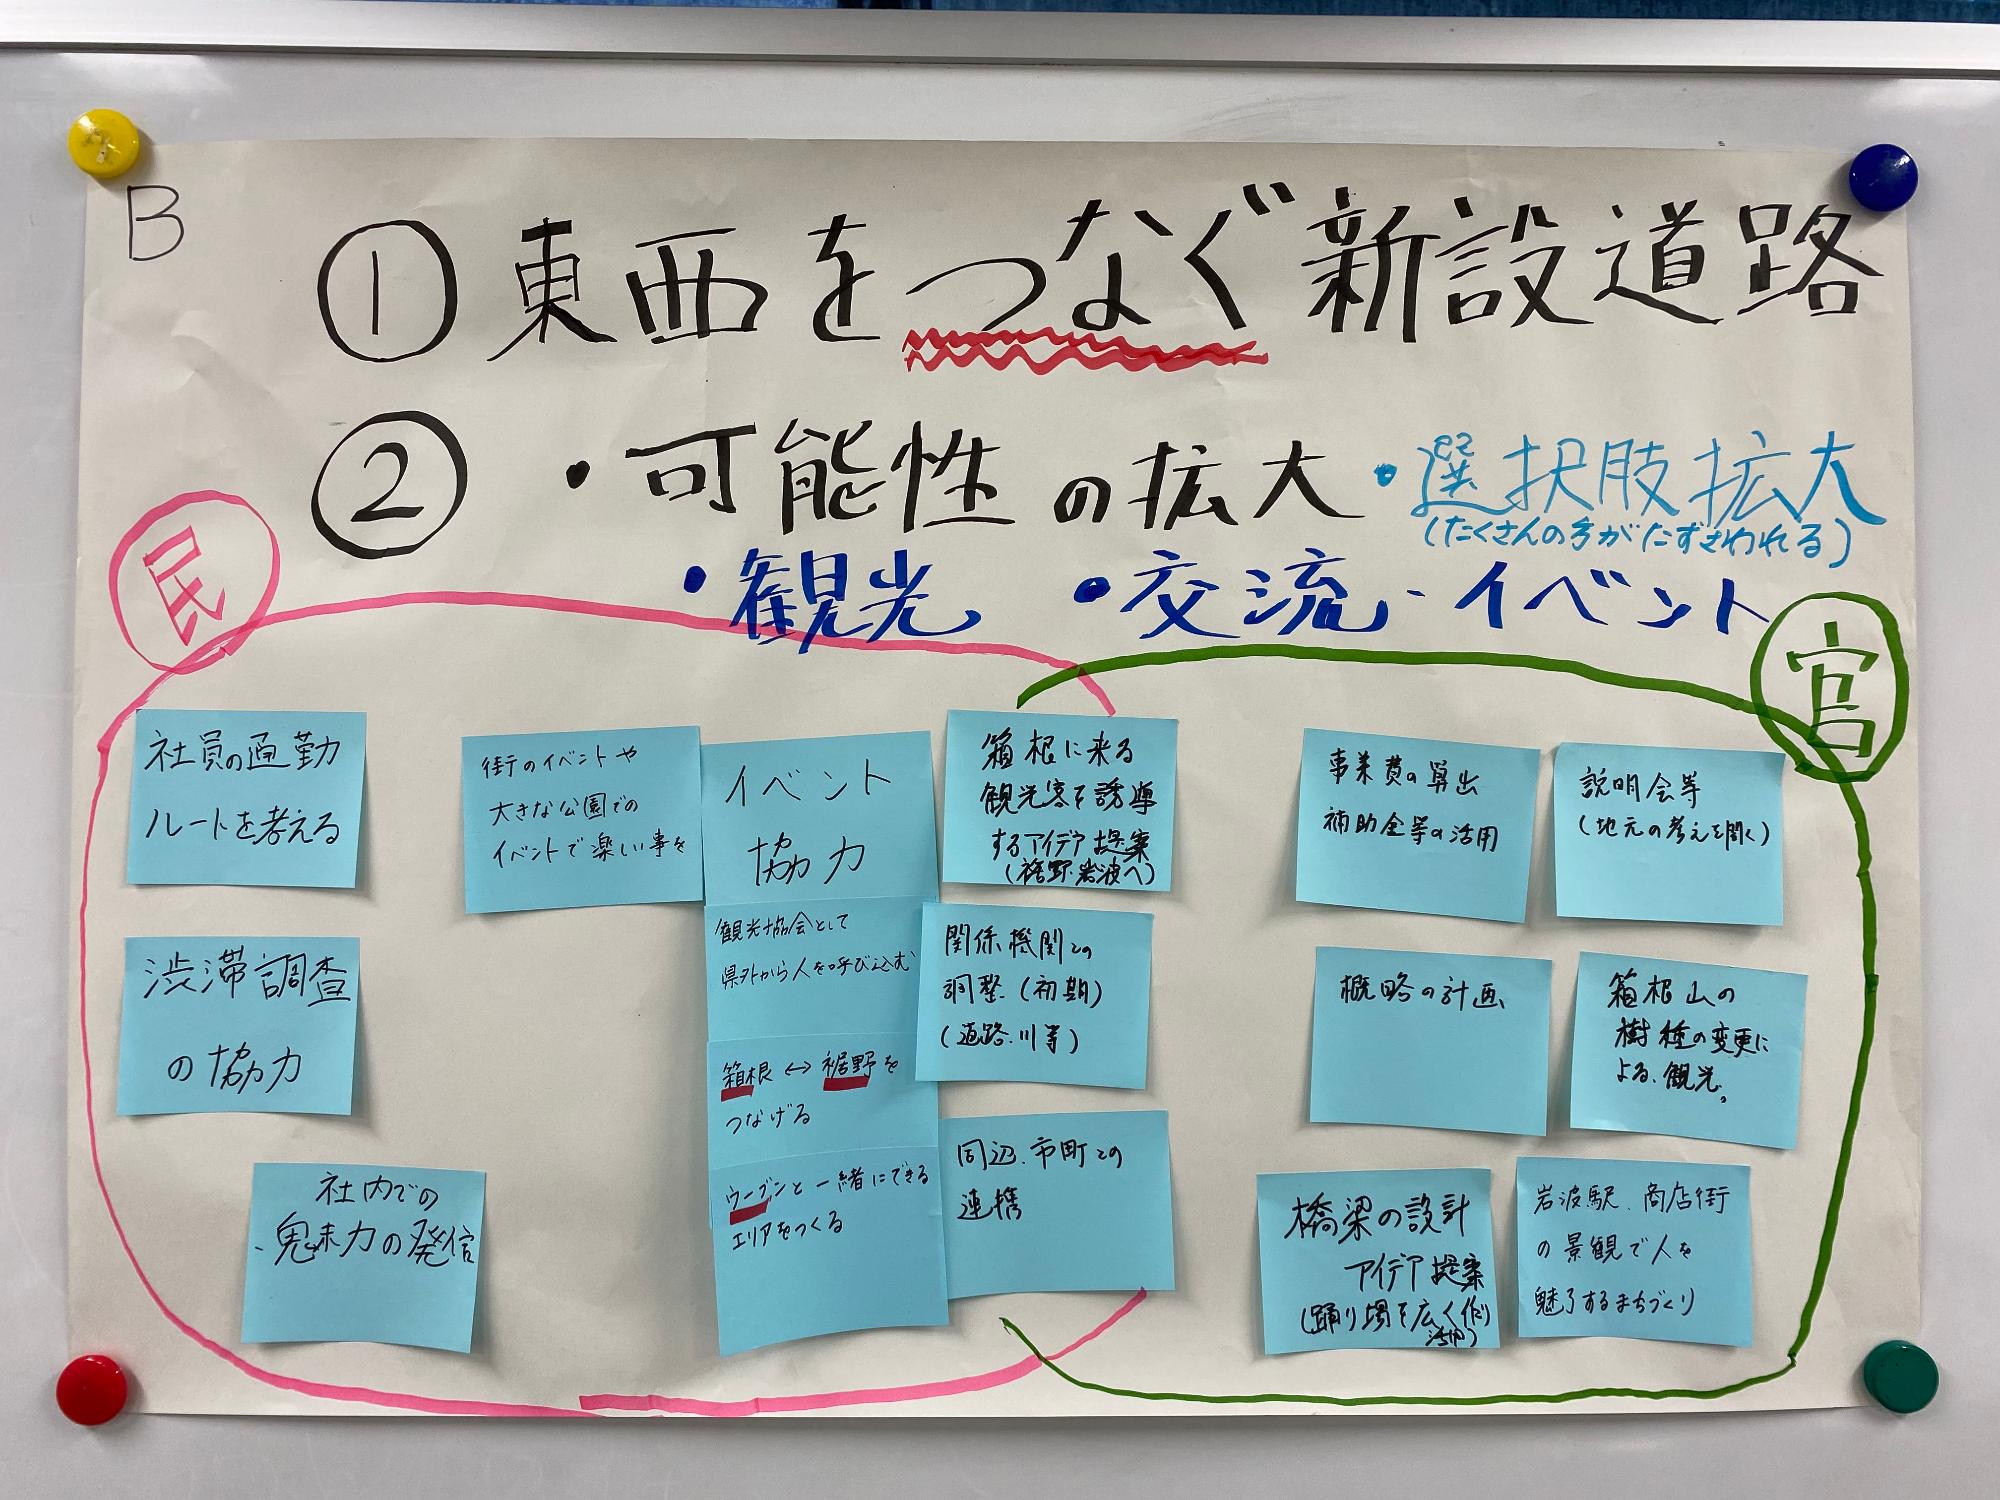 B
①東西をつなぐ新設道路
②・可能性の拡大・選択肢拡大
(たくさんの手がたずさわれる)
・観光 ・交流・イベント
民
官
社員の通勤
ルートを考える
渋滞調査
の協力
社内での
魅力の発信
街のイベントや
大きな公園での
イベントで楽しい事を
イベント
協力
観光協会として
県外から人を呼び込む
箱根↔裾野を
つなげる
ウーブンと一緒にできる
エリアをつくる
箱根に来る
観光客を誘導
するアイデア提案
(裾野.岩波へ)
関係機関との
調整(初期)
(道路.川等)
周辺.市町との
連携
事業費の算出
補助金等の活用
説明会等
(地元の考えを聞く)
概略の計画
箱根山の
樹種の変更に
よる.観光。
橋梁の設計
アイデア提案
(踊り場を広く作り
活用)
岩波駅.商店街
の景観で人を
魅了するまちづくり